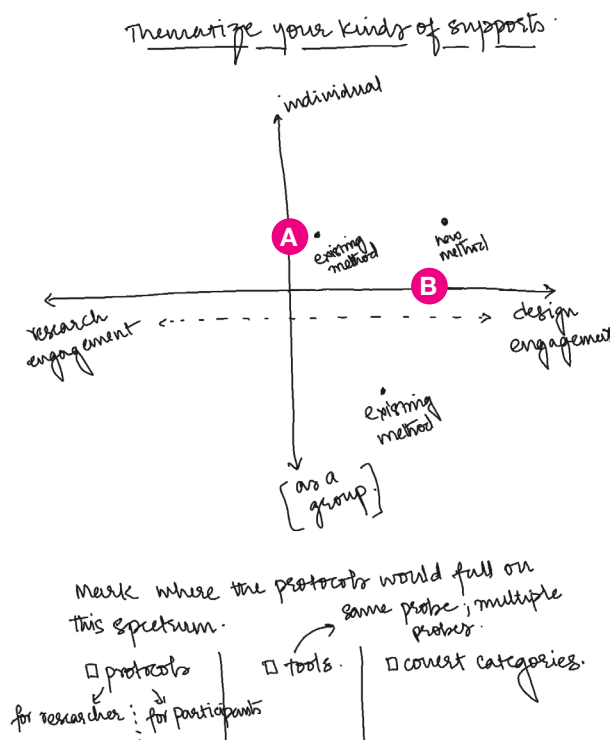 Thematize your kinds of supports.
individual
A
existing
method
new
method
B
research
engagement
design
engagement
existing
method
[as a
group.]
Mark where the protocols would fall on
this spectrum.
same probe; multiple
probes.
protocols
tools.
covert categories.
for researcher
for participants